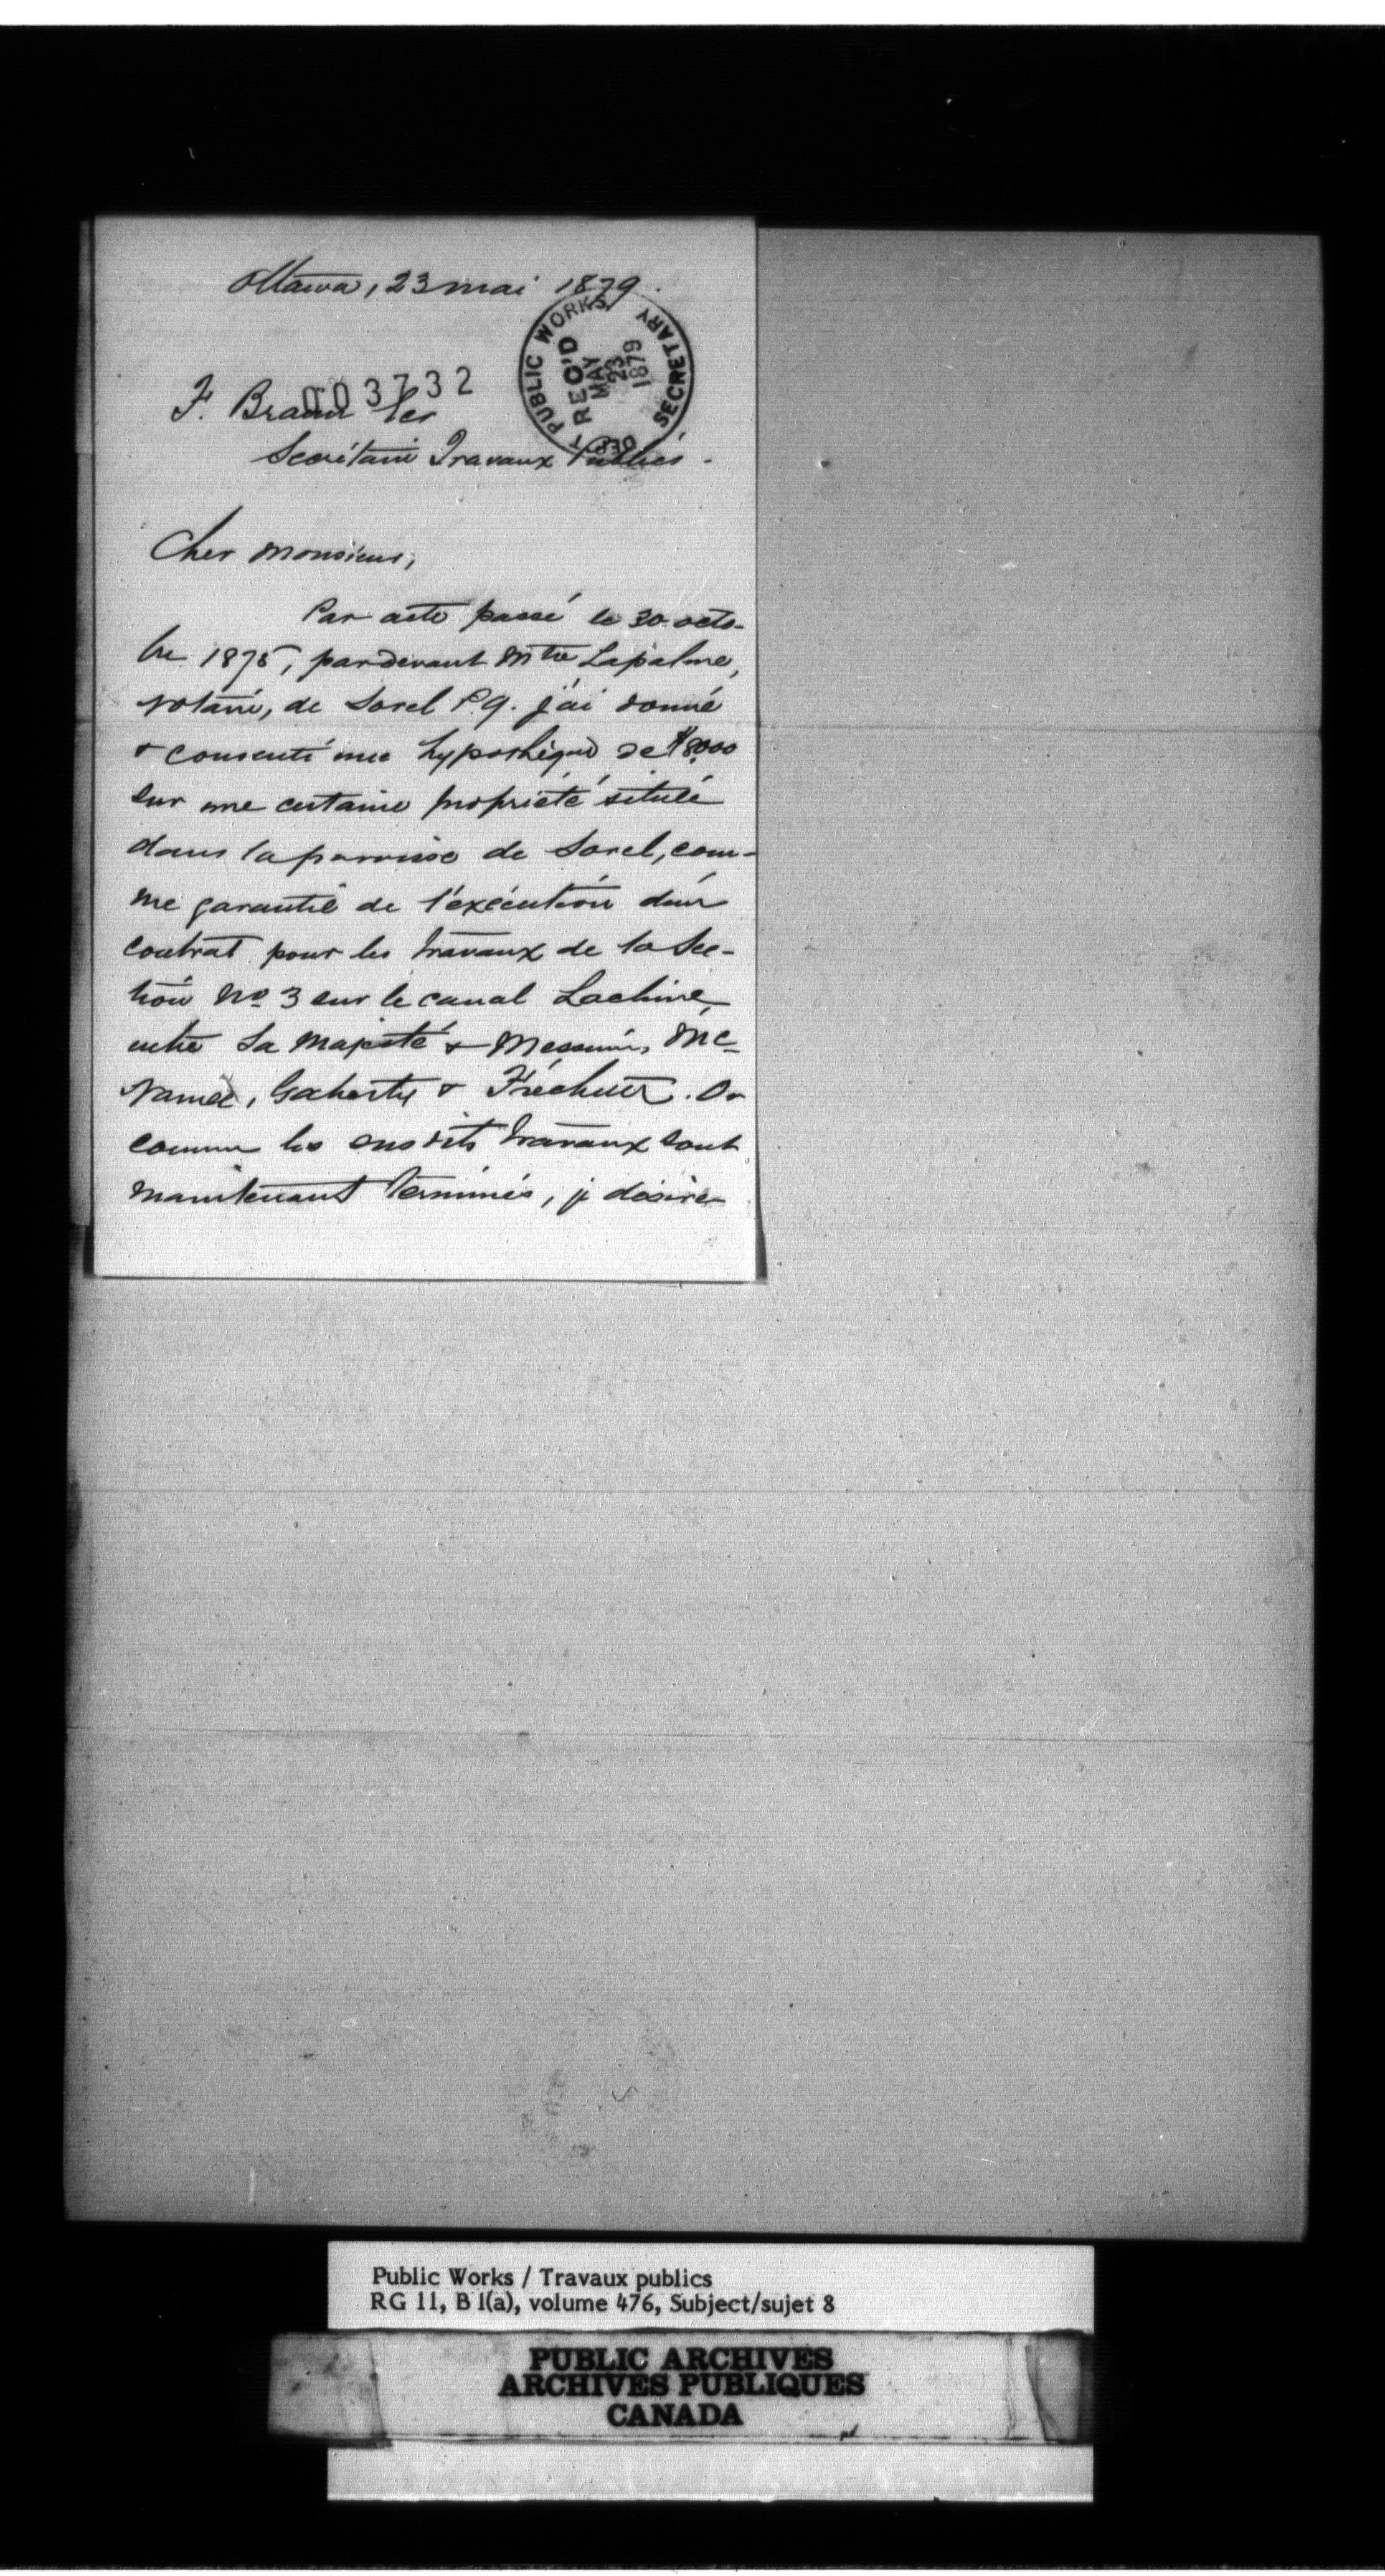 Ottawa, 23 mai 1879.
DEPT PUBLIC WORKS SECRETARY
REC'D
MAY
23
1879
003732
F. Braun Ecr
Secrétaire Travaux Publics.
Cher monsieur,
Par acte passé le 30 octo-
bre 1875, pardevant Mtre Lapalme,
notaire, de Sorel P.Q. j'ai donné
& consenti une hypothèque de $8000
sur une certaine propriété située
dans la paroisse de Sorel, com-
me garantie de l'exécution d'un
contrat pour les travaux de la Sec-
tion No 3 sur le canal Lachine,
entre Sa Majesté & Messieurs Mc-
Namee, Gaherty & Fréchette. Or
comme les susdits travaux sont
maintenant terminés, je désire
Public Works / Travaux publics
RG 11, B 1(a), volume 476, Subject/sujet 8
PUBLIC ARCHIVES
ARCHIVES PUBLIQUES
CANADA